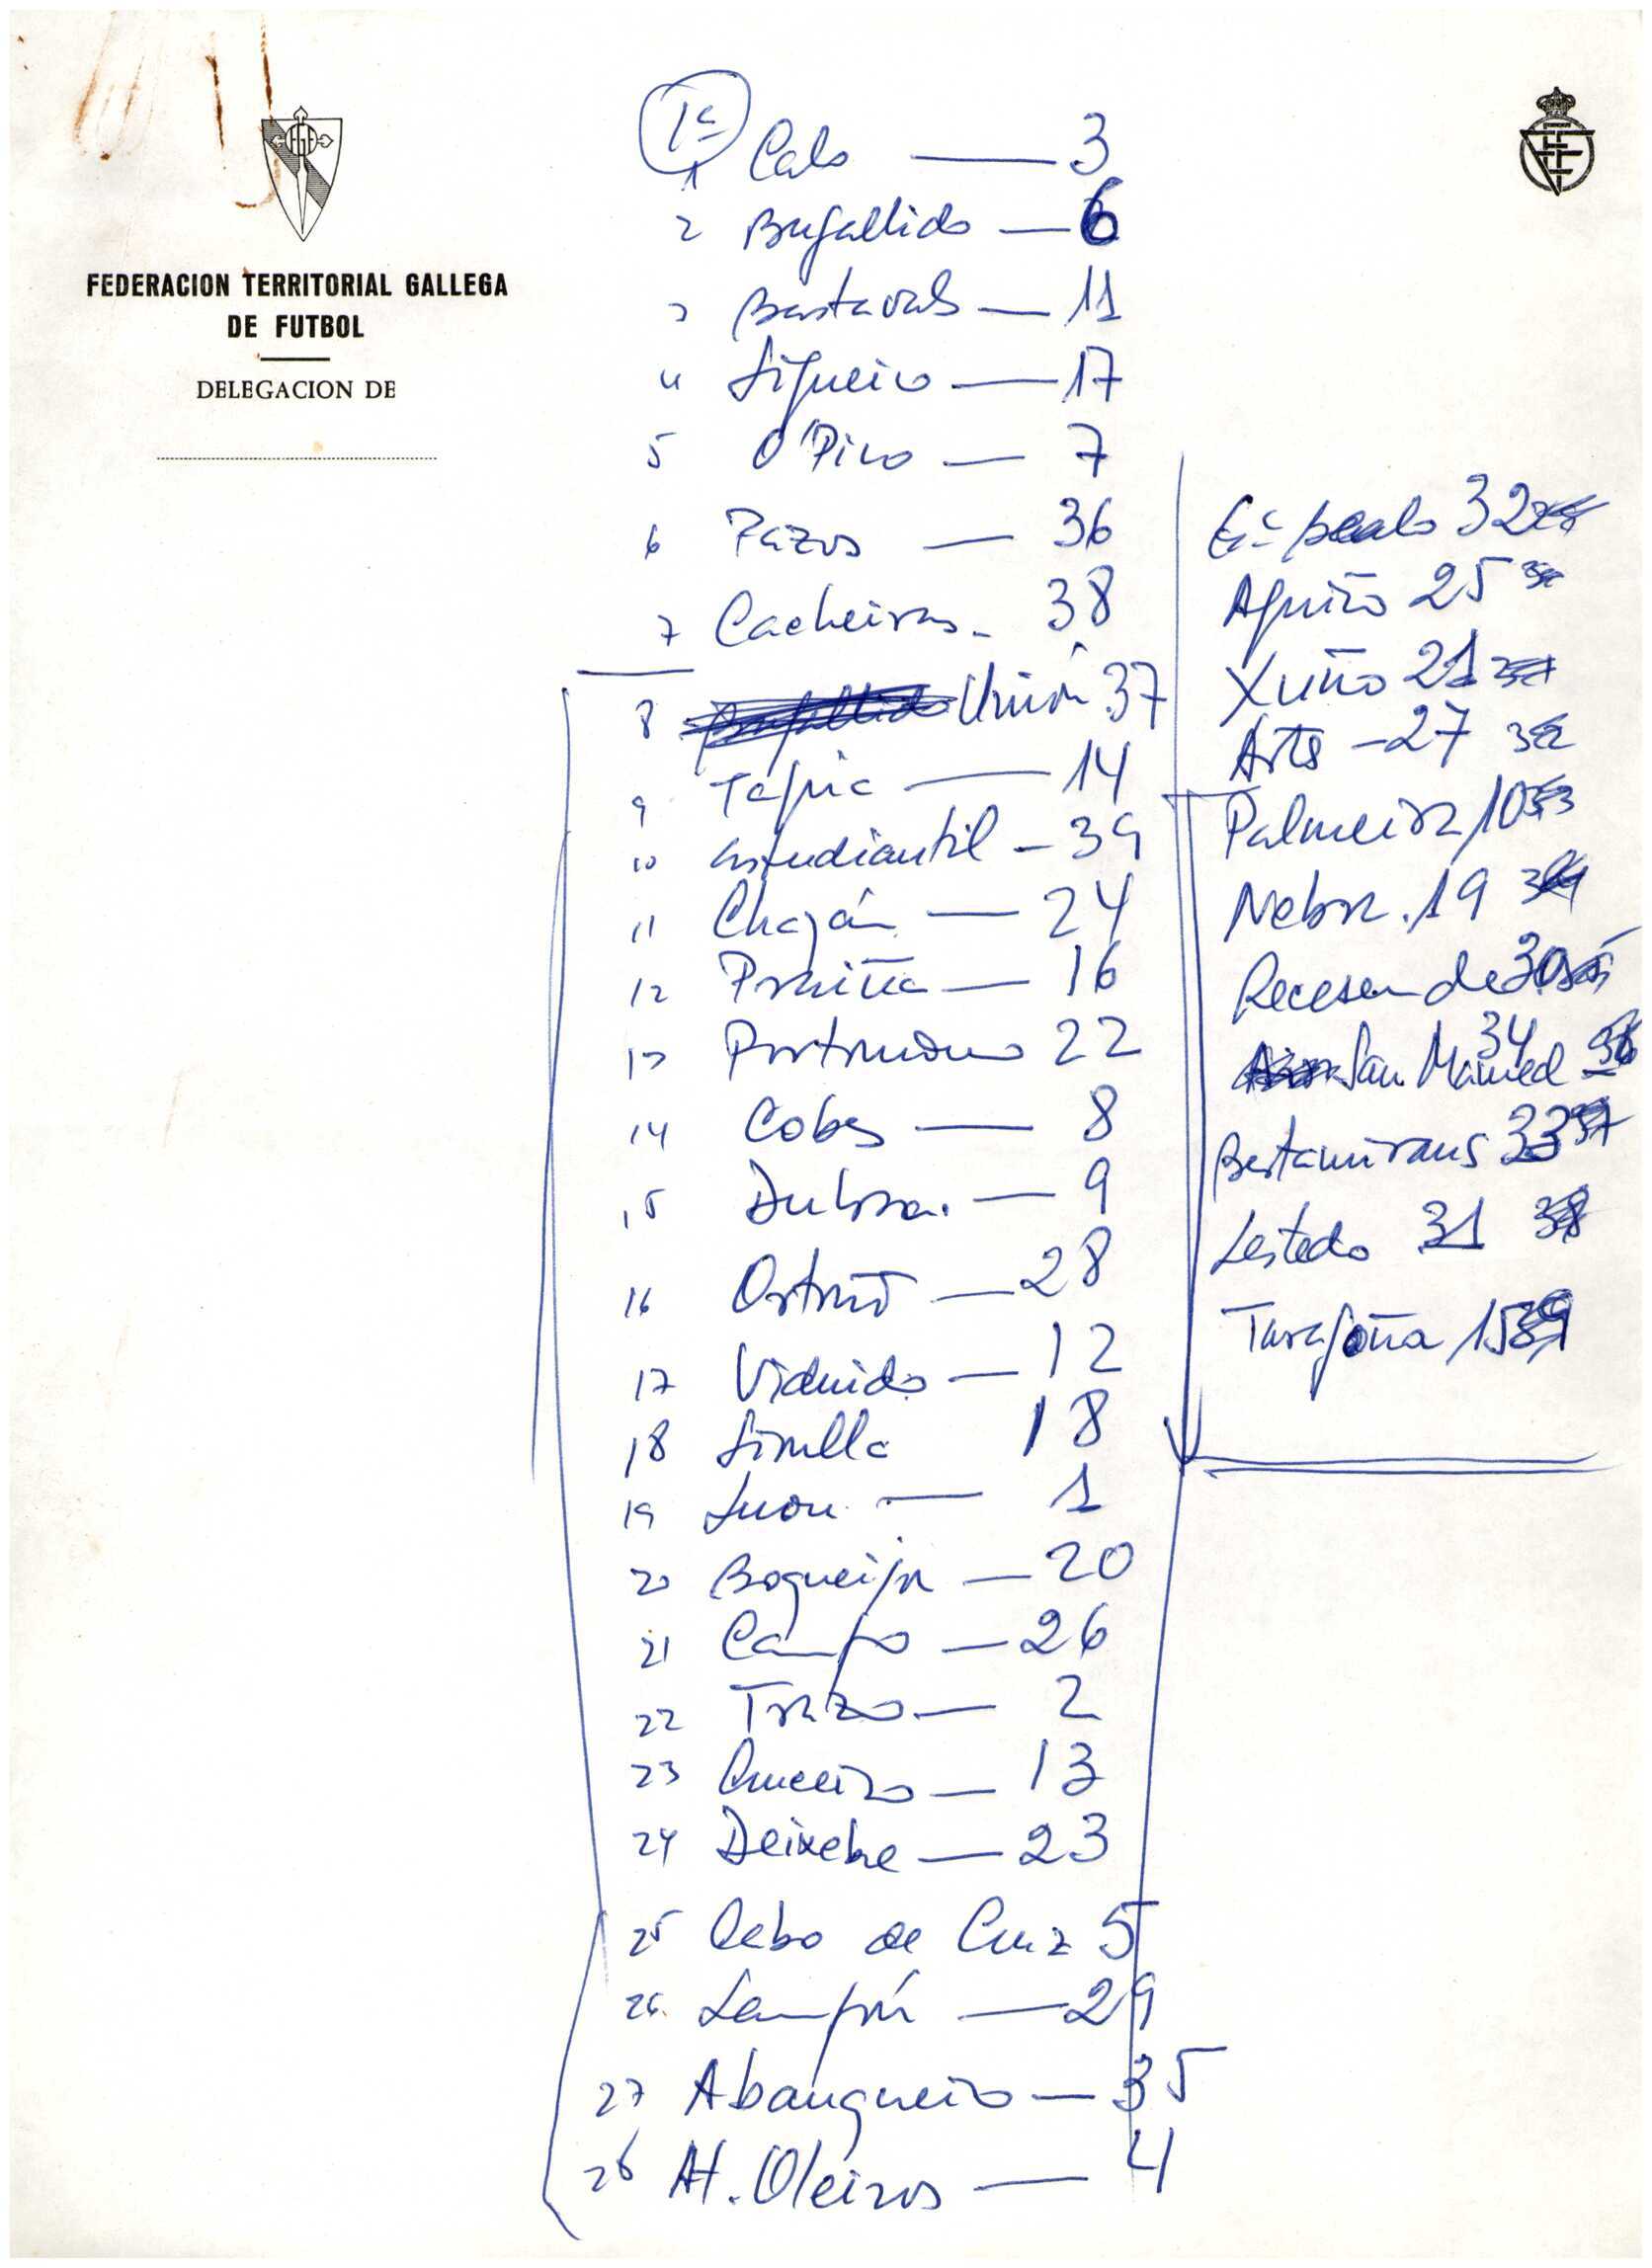 FEDERACION TERRITORIAL GALLEGA
DE FUTBOL
DELEGACION DE
1ª
1 Calo — 3
2 Bugallido — 6
3 Bastavals — 11
4 Sigueiro — 17
5 O'Pino — 7
6 Pazos — 36
7 Cacheiras - 38
8 Unión 37
9 Tapia — 14
10 estudiantil - 39
11 Chazán — 24
12 Praiña — 16
13 Portomouro 22
14 Cobas — 8
15 Dubra. — 9
16 Ortoño — 28
17 Viduido — 12
18 Sinella 18
19 Luou — 1
20 Boqueijon — 20
21 Campo — 26
22 Trazo — 2
23 Cruceiro — 13
24 Deixebre — 23
25 Cabo de Cruz 5
26 Lampón — 29
27 Abanqueiro — 35
28 At. Oleiros — 4
32
Aguiño 25
Xuño 21
Artes - 27
Palmeira 10
Nebra. 19
Recesende 30
San Mamed 34
Bertamirans 33
Lestedo 31
Taragoña 15